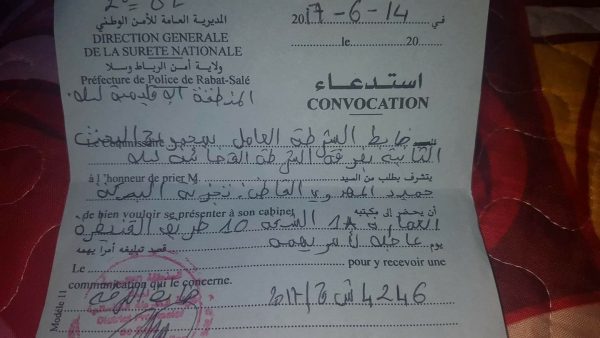 المديرية العامة للأمن الوطني
DIRECTION GENERALE
DE LA SURETE NATIONALE
ولاية أمن الرباط وسلا
Préfecture de Police de Rabat-Salé
المنطقة الإقليمية سلا
في 2017-6-14
le 20
استدعاء
CONVOCATION
ضابط الشرطة العامل بمجموعة البحث
Commissaire
الثانية بفرقة الشرطة القضائية سلا
à l'honneur de prier M. يتشرف بطلب من السيد
حميد
de bien vouloir se présenter à son cabinet أن يحضر إلى مكتبه
10 طريق القنيطرة
يوم عاجلا لأمر يهمه قصد تبليغه أمرا يهمه
Le pour y recevoir une
communication qui le concerne.
4246
Modèle 11